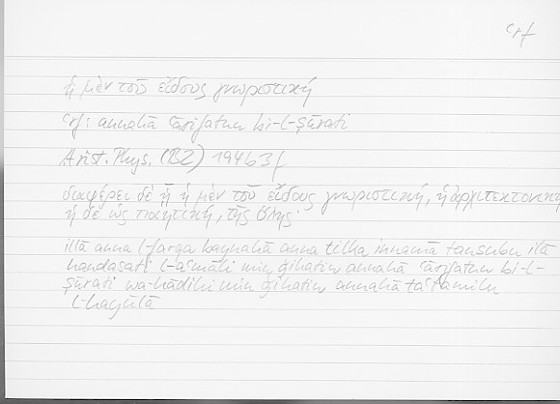 crf
ἡ μὲν τοῦ εἴδους γνωριστική
crf: annahā ʿārifatun bi-l-ṣūrati
Arist. Phys. (B2) 194b3f
διαφέρει δὲ ᾗ ἡ μὲν τοῦ εἴδους γνωριστική, ἡ ἀρχιτεκτονική
ἡ δὲ ὡς ποιητική, τῆς ὕλης·
illā anna l-farqa baynahā anna tilka innamā tunsabu ilā
handasati l-aʿmāli min ǧihatin annahā ʿārifatun bi-l-
ṣūrati wa-hāḏihi min ǧihatin annahā taštamilu
l-hayūlā